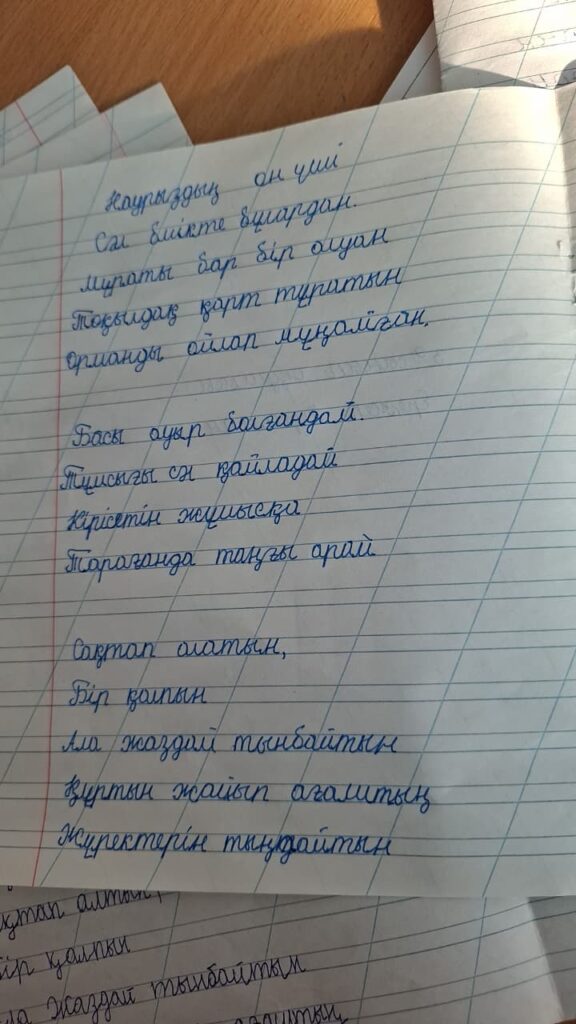 Наурыздың он үші
Сәл биікте бұлардан.
Мұраты бар бір алуан
Тоқылдақ қарт тұратын
Орманды ойлап мұңайған.
Басы ауыр болғандай.
Тұмсығы сәл қайладай
Кірісетін жұмысқа
Тарағанда таңғы арай
Сақтап алатын,
Бір қалпын
Ала жаздай тынбайтын
Құртын жайып ағалитың
Жүректерін тыңдайтын
қтап алтын,
Бір қалпын
ла жаздай тынбайтын